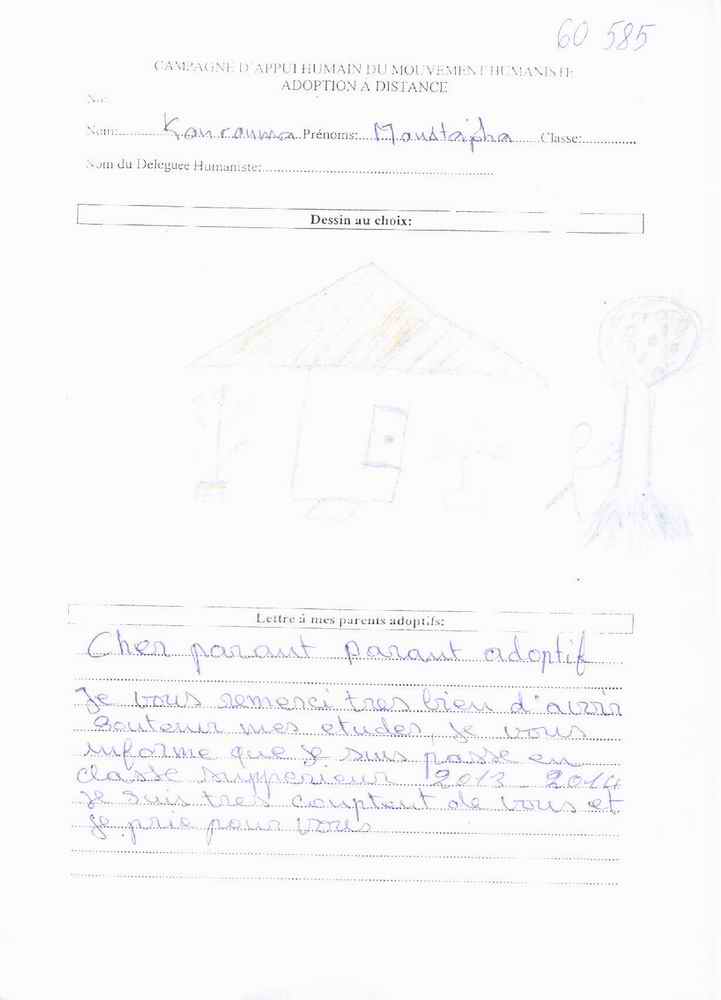 60 585
CAMPAGNE D'APPUI HUMAIN DU MOUVEMENT HUMANISTE
ADOPTION A DISTANCE
No:
Nom:............Kourouma Prénoms:...Moustapha...... Classe:..............
Nom du Deleguee Humaniste:..............................................................
Dessin au choix:
Lettre à mes parents adoptifs:
Cher parant parant adoptif
Je vous remerci tres bien d'avoir
Soutenir mes etudes, je vous
informe que je suis passé en
classe supperieur 2013 - 2014
je suis tres comptent de vous et
je prie pour vous